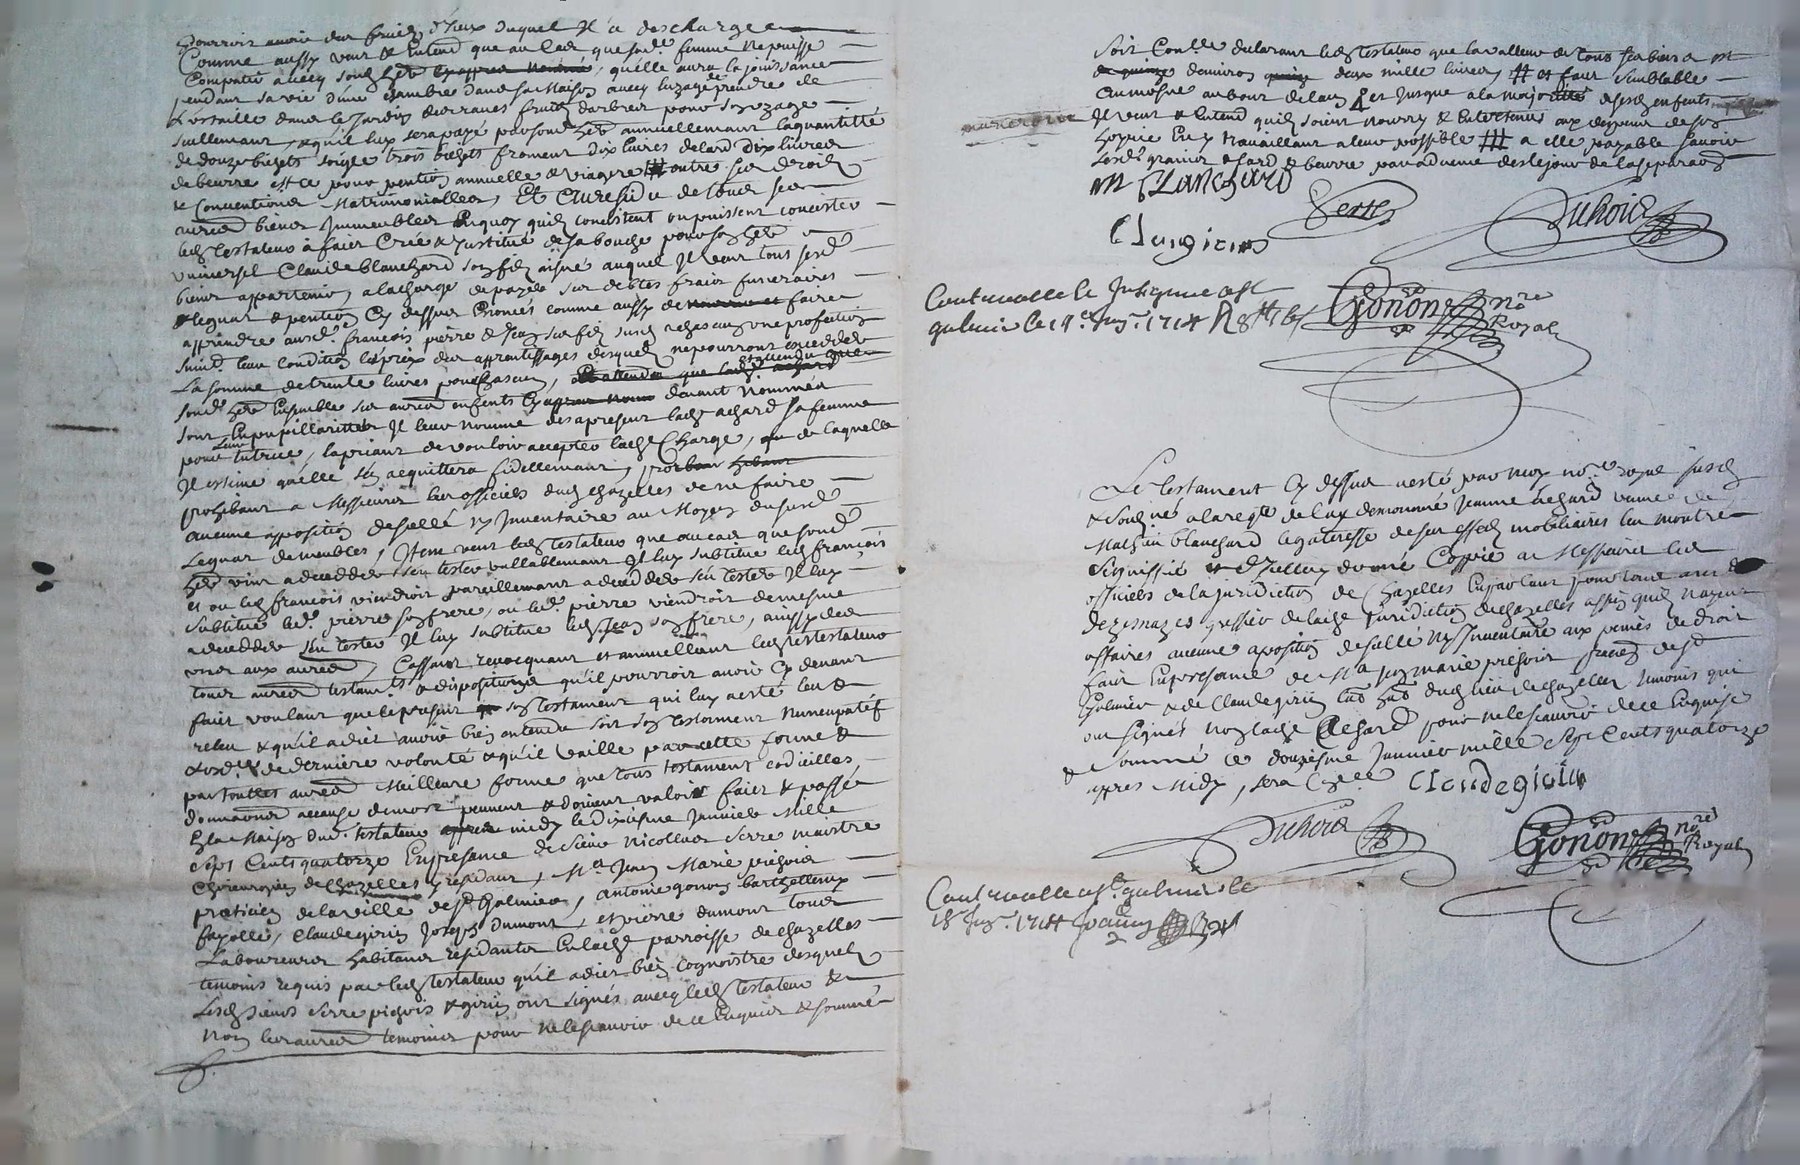 pourroit avoir des fruicts d'iceux duquel Il a deschargée
Comme aussy veut & Entend que au Cas que sad. femme ne puisse
Compatir avecq sond. her. cy apres nommé, qu'elle aura la jouissance
pendant sa vie d'une chambre dans sa Maison avecq luzage de prendre de
Lortaille dans le Jardin des raves fruicts d'arbres pour son uzage
seullement, & qu'il luy sera payé par sond. her. annuellement la quantitté
de douze bichets soigle trois bichets froment dix livres de lard dix livres
de beurre & ce pour pention annuelle & viagere # outre ses droits
& Conventions Matrimonialles, Et Au residu de tous ses
autres biens Immeubles En quoy qu'ils consistent ou puissent consister
led. testateur à faict Creé & Institué de sa bouche pour son her.
universel Claude blanchard son fils aisné auquel Il veut tous sesd.
biens appartenir, a la charge de payer ses debtes frais funeraires
& leguat & pention Cy dessus enoncés comme aussy de faire
apprendre ausd. francois pierre & Jean ses fils susd. a chascung une profection
suivt. leur condition le prix des apprentissages desquels ne pourront exceder
La somme de trente livres pour chascun, et attendu que
sond. her. Ensemble ses autres enfents cy devant Nommés
sont En pupillaritté Il leur nomme des apresent lad. achard sa femme
pour leur tutrice, la priant de vouloir accepter lad. Charge, de laquelle
Il estime qu'elle s'en acquittera fidellement,
prohibant a Messieurs les officiers dud. chazelles de ne faire
aucune apposition de sellé ny Inventaire au Moyen du susd.
Leguat de meubles, Item veut led. testateur que au cas que sond.
her. vint a decedder sen tester vallablement Il luy substitue led. francois
et ou led. francois viendroit pareillement a decedder sen tester Il luy
substitue led. pierre son frere, ou led. pierre viendroit de mesme
a decedder sen tester Il luy substitue led. Jean son frere, ainsy des
uns aux autres, Cassant revocquant et annullant led. testateur
tous autres testamts & dispositions qu'il pourroit avoir Cy devant
faict voulant que le present son testament qui luy a esté leu &
releu & qu'il a dict avoir bien entendu soit son testement Nuncupatif
& ord. de derniere volonté & qu'il vaille par cette forme &
par toultes autres Meilleure forme que tous testament codicilles
donnaons a cause de mort peuvent & doivent valoir faict & passé
En la Maison dud. testateur apres midy le dixiesme Janvier Mille
Sept Cents quatorze En presance de Sieur Nicollas Serre maistre
Chirurgien de chazelles y residant, Me Jean Marie pichoir
praticien de la ville de St Galmier, antoine gonon barthellemy
fayolle, Claude girin Joseph Dumont, et pierre dumont tous
Laboureurs habitants residants En lad. parroisse de chazelles
temoins requis par led. testateur qu'il a dict bien cognoistre desquels
Lesd. sieurs serre pichoir & girin ont signés avecq led. testateur &
Non les autres temoins pour ne le scavoir de ce Enquis & sommé
soit Conlle declarant led. testateur que la valleur de tous ses biens
d'environ deux mille livres, # et faire semblable
aumosne au bout de lan & et jusque a la majoritté de sesd. enfents
Il veut & Entend qu'ils soient nourry & Entretenus aux despens de son
hoyrie En y travaillant a leur possible ## a elle payable scavoir
Lesd. grains & lard & beurre par advence des le jour de la separaon
m Blanchard
Serre
Duhoir
Claugirin
Controolle le Insignue a St
galmier le 19e Janr. 1714
Gonon nre
Royal
Le testament Cy dessus a esté par moy nore royal susd.
& Soubsné a la reqte de la y denommé Jeanne Achard vefve de
Mathieu blanchard legateresse de ses effects mobiliaires leu montré
Signiffié et d'Icelluy donné Coppie a Messieurs les
officiers de la juridiction de Chazelles En parlant
greffier de lad. juridiction de chazelles affin qu'ils n'ayent
affaires aucune aposition de sellé ny Inventaire aux peines de droit
faict En presance de Me Jean marie pichoir praticien de St
Galmier & de Claude girin lab. hab. dud. lieu de chazelles temoins qui
ont signés non lad. Achard pour ne le scavoir de ce Enquise
& Sommé ce douziesme Janvier mille Sept Cents quatorze
appres Midy,
Claudegirin
Duhoir
Gonon nre
Royal
Controolle a St galmier le
18e Janr. 1714